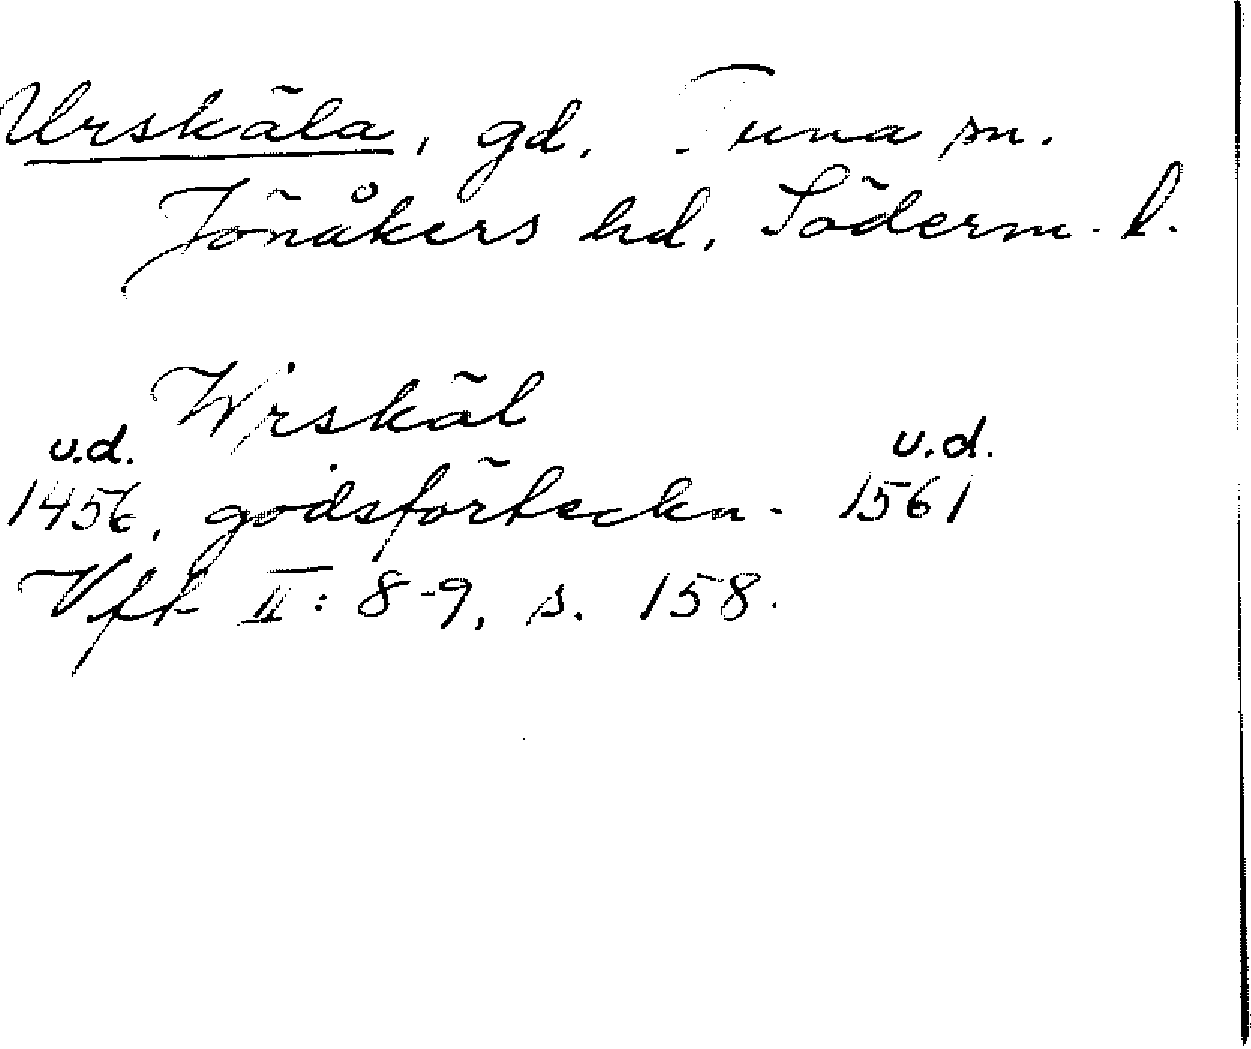 Urskäla, gd. Tuna sn.
Jönåkers hd, Söderm. l.
Wrskäl
u.d. u.d.
1456, godsförteckn. 1561
Vfk II: 8-9, s. 158.